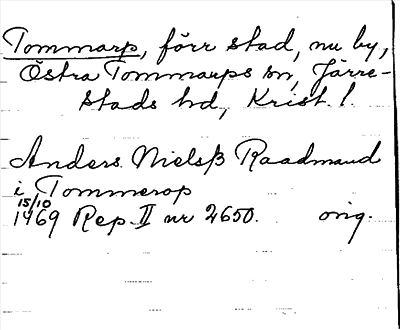 Tommarp, förr stad, nu by,
Östra Tommarps sn, Järre-
stads hd, Krist. l.
Anders Nielsß Raadmand
i Tommerop
15/10
1469 Rep. II nr 2650. orig.